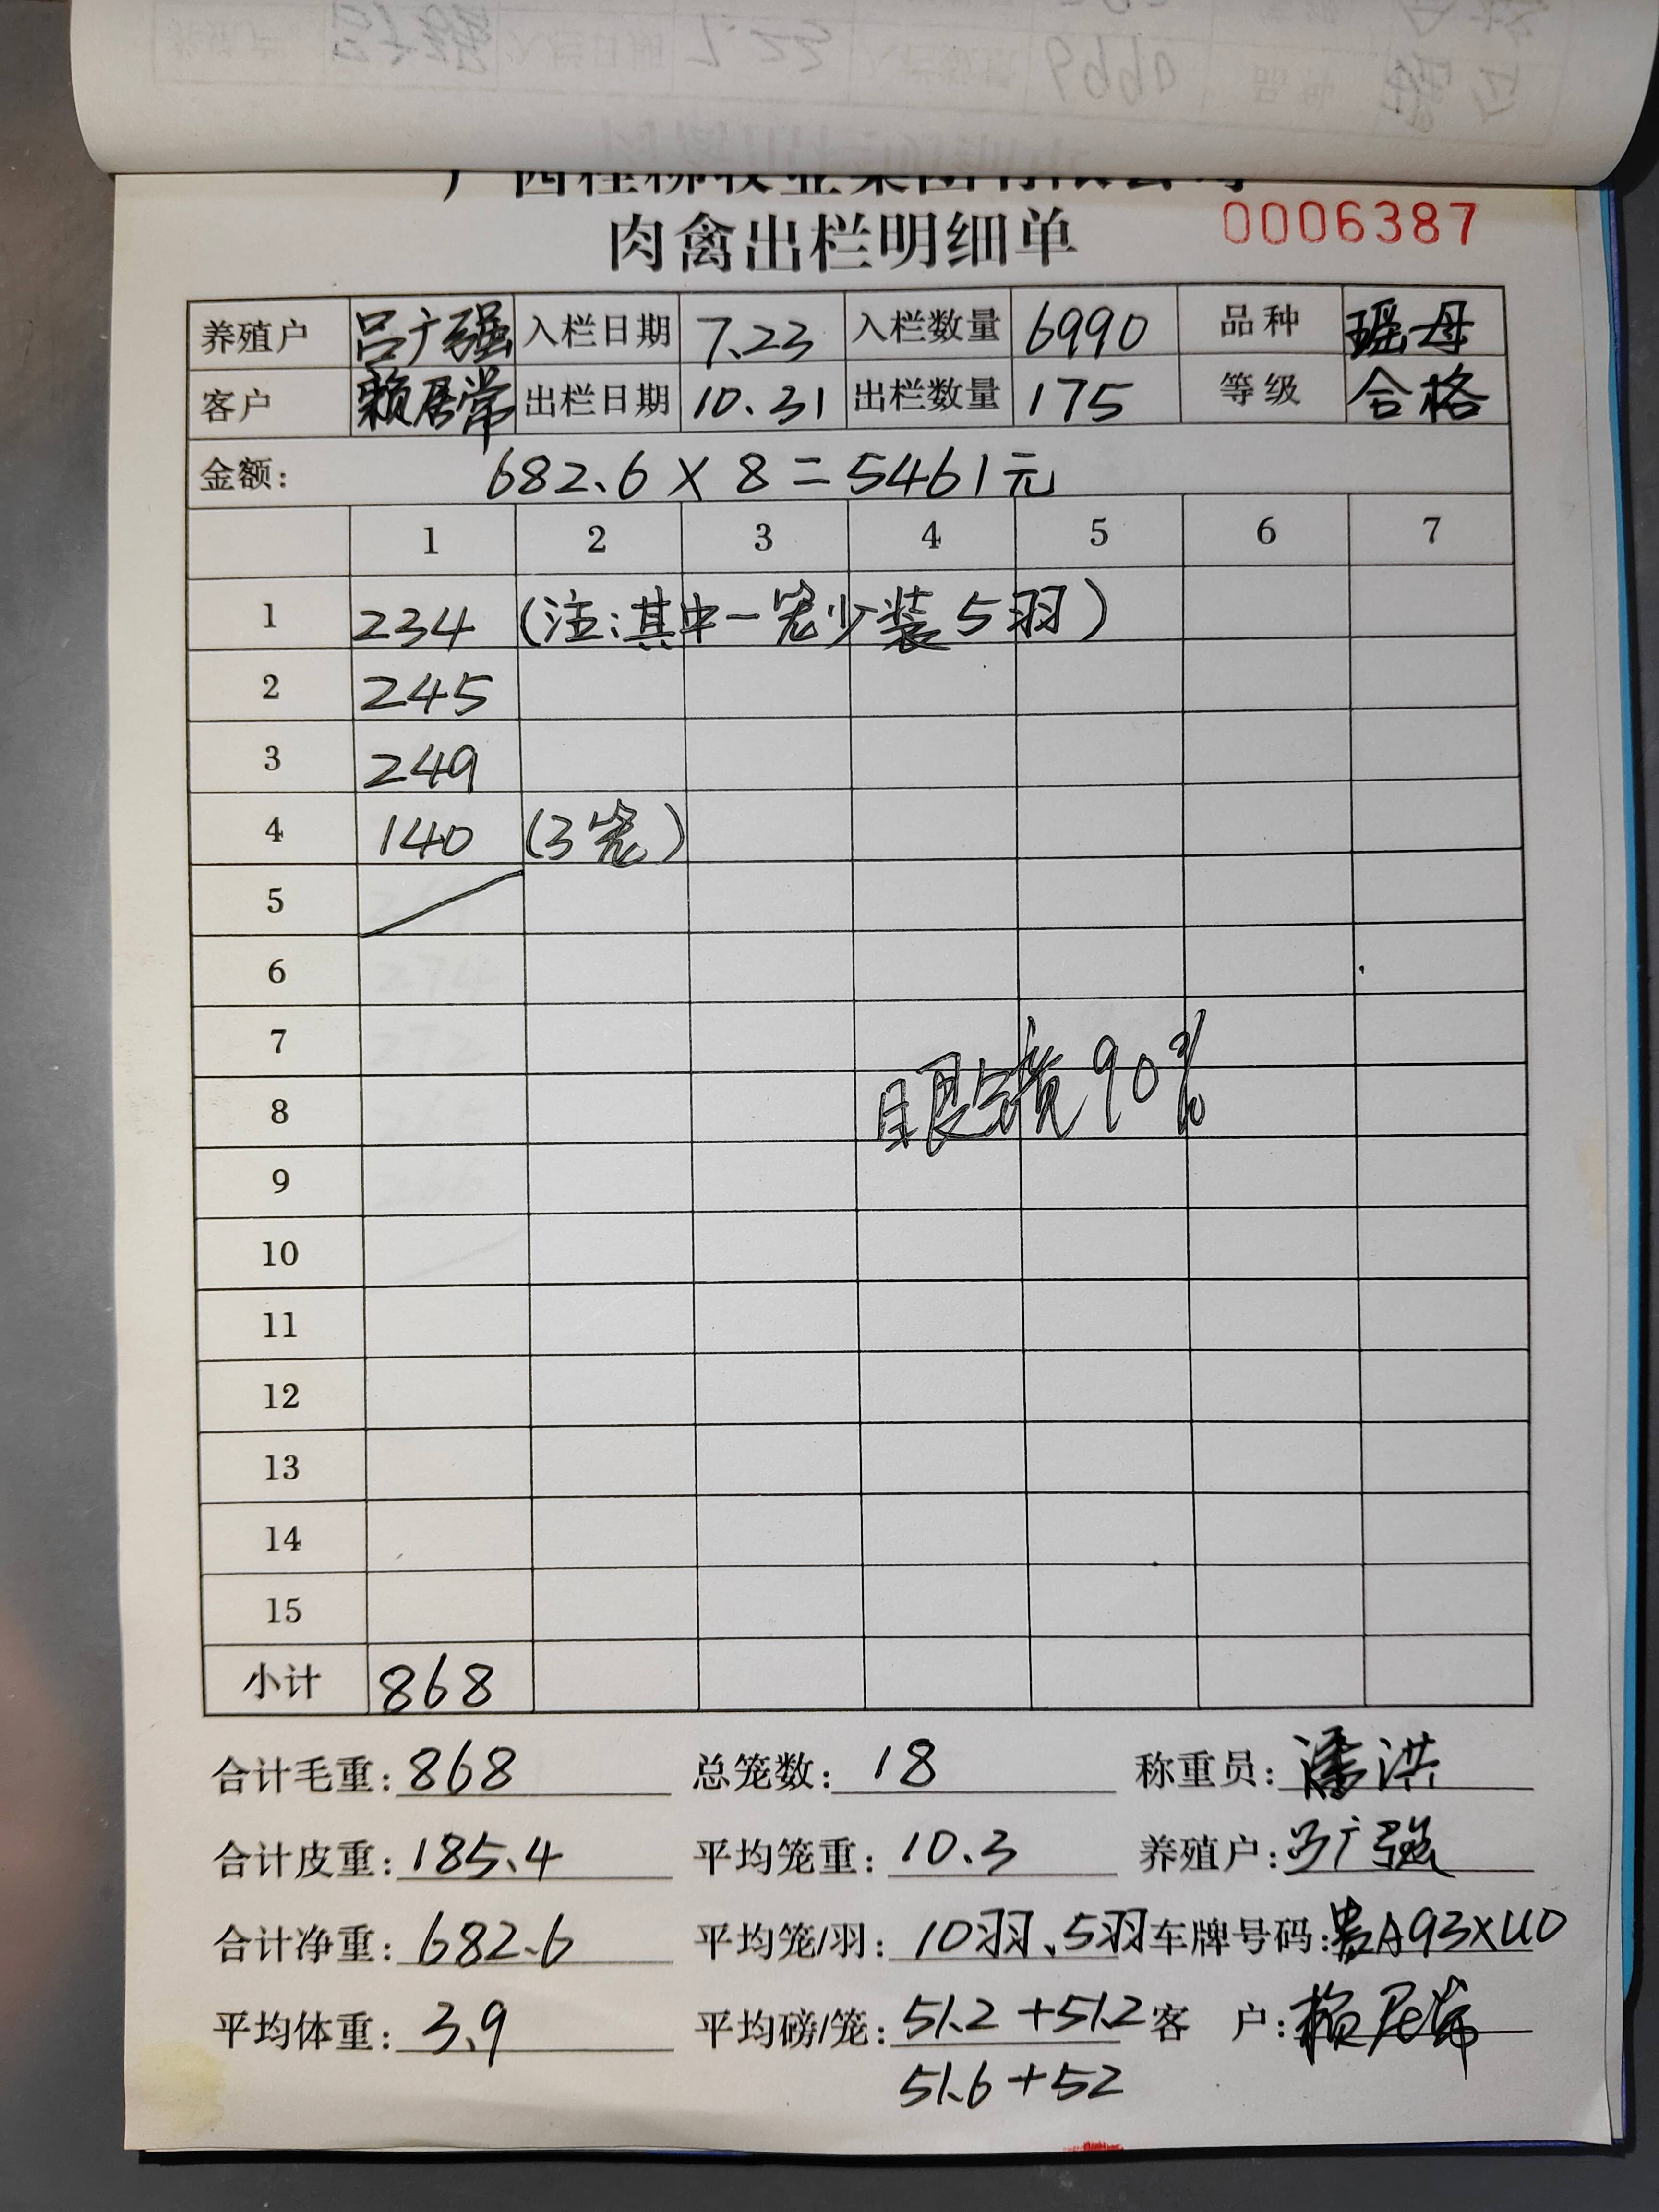 肉禽出栏明细单 0006387
养殖户 吕广强 入栏日期 7.23 入栏数量 6990 品种 瑶母
客户 赖居常 出栏日期 10.31 出栏数量 175 等级 合格
金额: 682.6 × 8 = 5461元
1 2 3 4 5 6 7
1 234 (注:其中一笼少装5羽)
2 245
3 249
4 140 (3笼)
5
6
7
眼镜90%
8
9
10
11
12
13
14
15
小计 868
合计毛重: 868 总笼数: 18 称重员: 潘洪
合计皮重: 185.4 平均笼重: 10.3 养殖户: 吕广强
合计净重: 682.6 平均笼/羽: 10羽、5羽 车牌号码: 贵A93XU0
平均体重: 3.9 平均磅/笼: 51.2 + 51.2 客 户: 赖居常
51.6 + 52